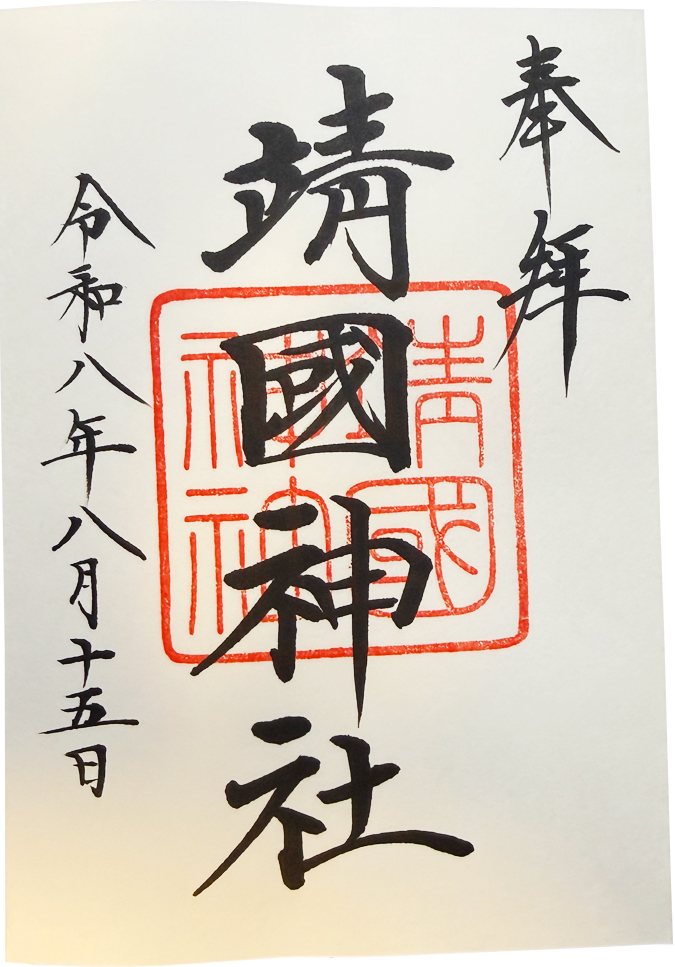 奉拜
靖國神社
令和八年八月十五日
靖國神社